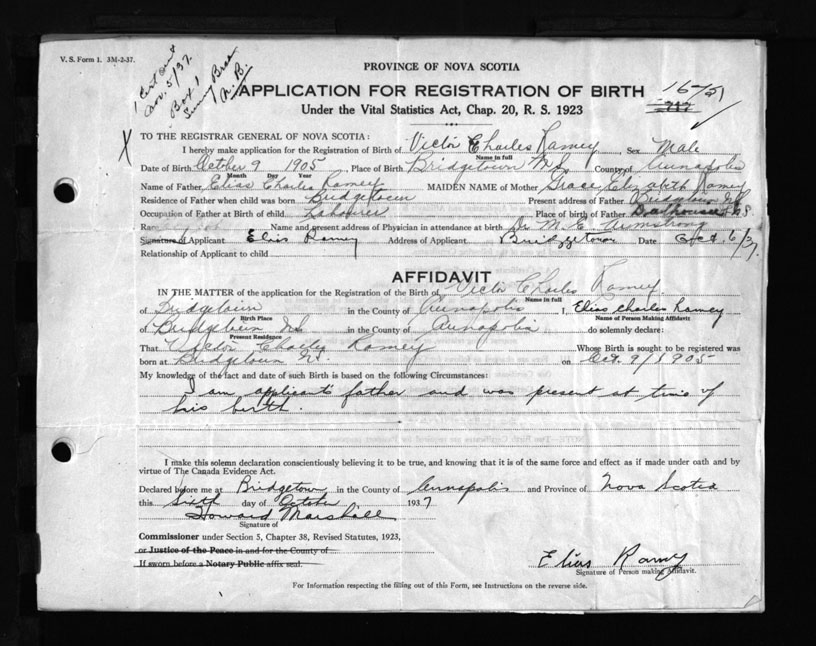 V. S. Form 1. 3M-2-37.
1 Cert out
Nov. 5/37.
Box 1
Sunny Brae
N. B.
PROVINCE OF NOVA SCOTIA
APPLICATION FOR REGISTRATION OF BIRTH
Under the Vital Statistics Act, Chap. 20, R. S. 1923
X TO THE REGISTRAR GENERAL OF NOVA SCOTIA:
I hereby make application for the Registration of Birth of Victor Charles Ramey Sex Male
Name in full
Date of Birth October 9 1905 Place of Birth Bridgetown N.S. County of Annapolis
Month Day Year
Name of Father Elias Charles Ramey MAIDEN NAME of Mother Grace Elizabeth Ramey
Residence of Father when child was born Bridgetown Present address of Father Bridgetown N.S.
Occupation of Father at Birth of child Labourer Place of birth of Father Dalhousie N.S.
Name and present address of Physician in attendance at birth Dr M. E. Armstrong
Signature of Applicant Elias Ramey Address of Applicant Bridgetown Date Oct. 6/37.
Relationship of Applicant to child
AFFIDAVIT
IN THE MATTER of the application for the Registration of the Birth of Victor Charles Ramey
Name in full
of Bridgetown in the County of Annapolis I, Elias Charles Ramey
Birth Place Name of Person Making Affidavit
of Bridgetown N.S. in the County of Annapolis do solemnly declare:
Present Residence
That Victor Charles Ramey Whose Birth is sought to be registered was
born at Bridgetown N.S. on Oct. 9/1905
My knowledge of the fact and date of such Birth is based on the following Circumstances:
I am applicant's father and was present at time of
his birth.
I make this solemn declaration conscientiously believing it to be true, and knowing that it is of the same force and effect as if made under oath and by
virtue of The Canada Evidence Act.
Declared before me at Bridgetown in the County of Annapolis and Province of Nova Scotia
this Sixth day of October 1937
Howard Marshall
Signature of
Commissioner under Section 5, Chapter 38, Revised Statutes, 1923,
or Justice of the Peace in and for the County of
If sworn before a Notary Public affix seal.
Elias Ramey
Signature of Person making Affidavit.
For Information respecting the filling out of this Form, see Instructions on the reverse side.